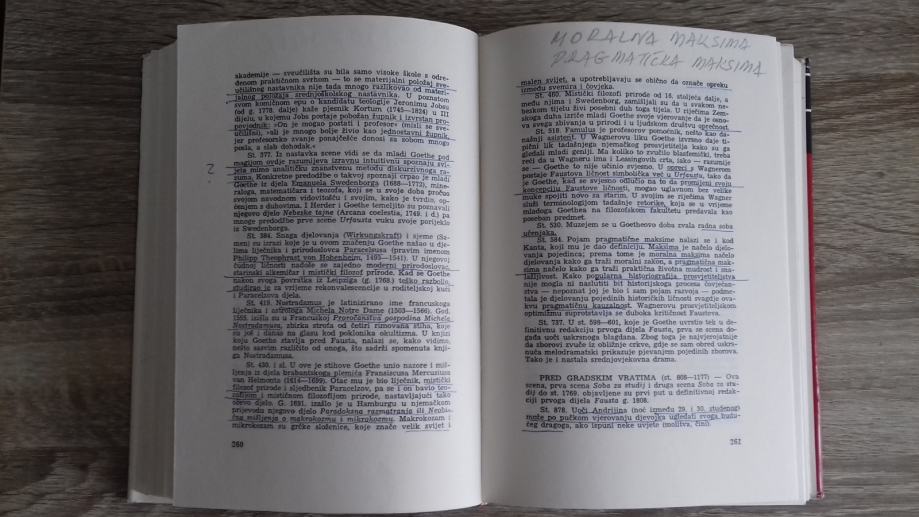 akademije — sveučilišta su bila samo visoke škole s odre-
đenom praktičnom svrhom — to se materijalni položaj sve-
učilišnog nastavnika nije tada mnogo razlikovao od materi-
jalnog položaja srednjoškolskog nastavnika. U poznatom
svom komičnom epu o kandidatu teologije Jeronimu Jobsu
(od g. 1778. dalje) kaže pjesnik Kortum (1745—1824) u III
dijelu, u kojemu Jobs postaje pobožan župnik i izvrstan pro-
povjednik: »On je mogao postati i profesor« (misli se sve-
učilišni), »ali je mnogo bolje živio kao jednostavni župnik,
jer profesorsko zvanje ponajčešće donosi za sobom mnogo
posla, a slab dohodak.«
St. 377. Iz nastavka scene vidi se da mladi Goethe pod
magijom ovdje razumijeva izravnu intuitivnu spoznaju svi-
2 jeta mimo analitičku znanstvenu metodu diskurzivnoga ra-
zuma. Konkretne predodžbe o takvoj spoznaji crpao je mladi
Goethe iz djela Emanuela Swedenborga (1688—1772), mine-
raloga, matematičara i teozofa, koji se u svoje doba pročuo
svojom navodnom vidovitošću i svojim, kako je tvrdio, op-
ćenjem s duhovima. I Herder i Goethe temeljito su poznavali
njegovo djelo Nebeske tajne (Arcana coelestia, 1749. i d.) pa
mnoge predodžbe prve scene Urfausta vuku svoje porijeklo
iz Swedenborga.
St. 384. Snaga djelovanja (Wirkungskraft) i sjeme (Sa-
men) su izrazi koje je u ovom značenju Goethe našao u dje-
lima liječnika i prirodoslovca Paracelsusa (pravim imenom
Philipp Theophrast von Hohenheim, 1493—1541). U njegovoj
čudnoj ličnosti nađoše se zajedno moderni prirodoslovac,
starinski alkemičar i mistički filozof prirode. Kad se Goethe
nakon svoga povratka iz Leipziga (g. 1768.) teško razbolio,
studirao je za vrijeme rekonvalescencije u roditeljskoj kući
i Paracelzova djela.
St. 419. Nostradamus je latinizirano ime francuskoga
liječnika i astrologa Michela Notre Dame (1503—1566). God.
1555. izišla su u Francuskoj Proročanstva gospodina Michela
Nostradamusa, zbirka strofa od četiri rimovana stiha, koje
za još i danas na glasu kod poklonika okultizma. U knjizi
koju Goethe stavlja pred Fausta, nalazi se, kako vidimo,
nešto sasvim različito od onoga, što sadrži spomenuta knji-
ga Nostradamusa.
St. 430. i sl. U ove je stihove Goethe unio nazore i miš-
ljenja iz djela brabantskoga plemića Franciscusa Mercuriusa
van Helmonta (1614—1699). Otac mu je bio liječnik, mistički
filozof prirode i sljedbenik Paracelzov, pa se i on bavio teo-
zofijom i mističnom filozofijom prirode, nastavljajući tako
očevo djelo. G. 1691. izašlo je u Hamburgu u njemačkom
prijevodu njegovo djelo Paradoksna razmatranja ili Neobič-
na mišljenja o makrokozmu i mikrokozmu. Makrokozam i
mikrokozam su grčke složenice, koje znače velik svijet i
260
MORALNA MAKSIMA
PRAGMATIČKA MAKSIMA
malen svijet, a upotrebljavaju se obično da označe opreku
između svemira i čovjeka.
St. 460. Mistički filozofi prirode od 16. stoljeća dalje, a
među njima i Swedenborg, zamišljali su da u svakom ne-
beskom tijelu živi posebni duh toga tijela. U riječima Zem-
skoga duha izriče mladi Goethe svoje vjerovanje da je osno-
va svega zbivanja u prirodi i u ljudskom društvu oprečnost.
St. 518. Famulus je profesorov pomoćnik, nešto kao da-
našnji asistent. U Wagnerovu liku Goethe izvrsno daje ti-
pični lik tadašnjega njemačkog prosvjetitelja kako su ga
gledali mladi geniji. Ma koliko to zvučilo blasfemički, treba
reći da u Wagneru ima i Lessingovih crta, iako — razumije
se — Goethe to nije učinio svjesno. U opreci s Wagnerom
postaje Faustova ličnost simbolička već u Urfaustu, tako da
je Goethe, kad se svjesno odlučio na to da promijeni svoju
koncepciju Faustove ličnosti, mogao uglavnom bez velike
muke spojiti novo za starim. U svojim se riječima Wagner
služi terminologijom tadašnje retorike, koja se u vrijeme
mladoga Goethea na filozofskom fakultetu predavala kao
poseban predmet.
St. 530. Muzejem se u Goetheovo doba zvala radna soba
učenjaka.
St. 584. Pojam pragmatične maksime nalazi se i kod
Kanta, koji mu je dao definiciju. Maksima je načelo djelo-
vanja pojedinca; prema tome je moralna maksima načelo
djelovanja kako ga traži moralni zakon, a pragmatična mak-
sima načelo kako ga traži praktična životna mudrost i sna-
lažljivost. Kako popularna historiografija prosvjetiteljstva
nije mogla ni naslutiti bit historijskoga procesa čovječan-
stva — nepoznat joj je bio i sam pojam razvoja — podme-
tala je djelovanju pojedinih historičkih ličnosti svagdje ova-
kvu pragmatičnu kauzalnost. Wagnerovu prosvjetiteljskom
optimizmu suprotstavlja se duboka kritičnost Faustova.
St. 737. U st. 598—601, koje je Goethe uvrstio tek u de-
finitivnu redakciju prvoga dijela Fausta, prva se scena do-
gađa uoči uskrsnoga blagdana. Zbog toga je najvjerojatnije
da zborovi zvuče iz obližnje crkve, gdje se sam obred uskrs-
nuća melodramatski prikazuje pjevanjem pojedinih zborova.
Tako je i nastala srednjovjekovna drama.
PRED GRADSKIM VRATIMA (st. 808—1177) — Ova
scena, prva scena Soba za studij i druga scena Soba za stu-
dij do st. 1769. objavljene su prvi put u definitivnoj redak-
ciji prvoga dijela Fausta g. 1808.
St. 878. Uoči Andrijina (noć između 29. i 30. studenog)
može po pučkom vjerovanju djevojka ugledati svoga budu-
ćeg dragoga, ako ispuni neke uvjete (molitva, čini).
261